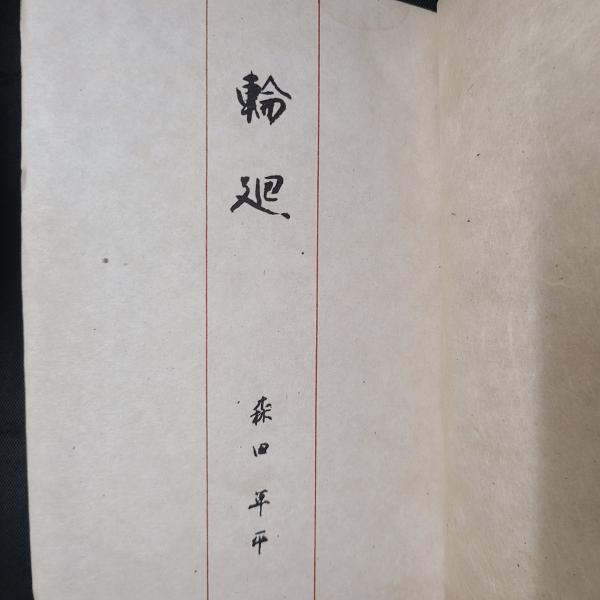 輪廻
森田草平